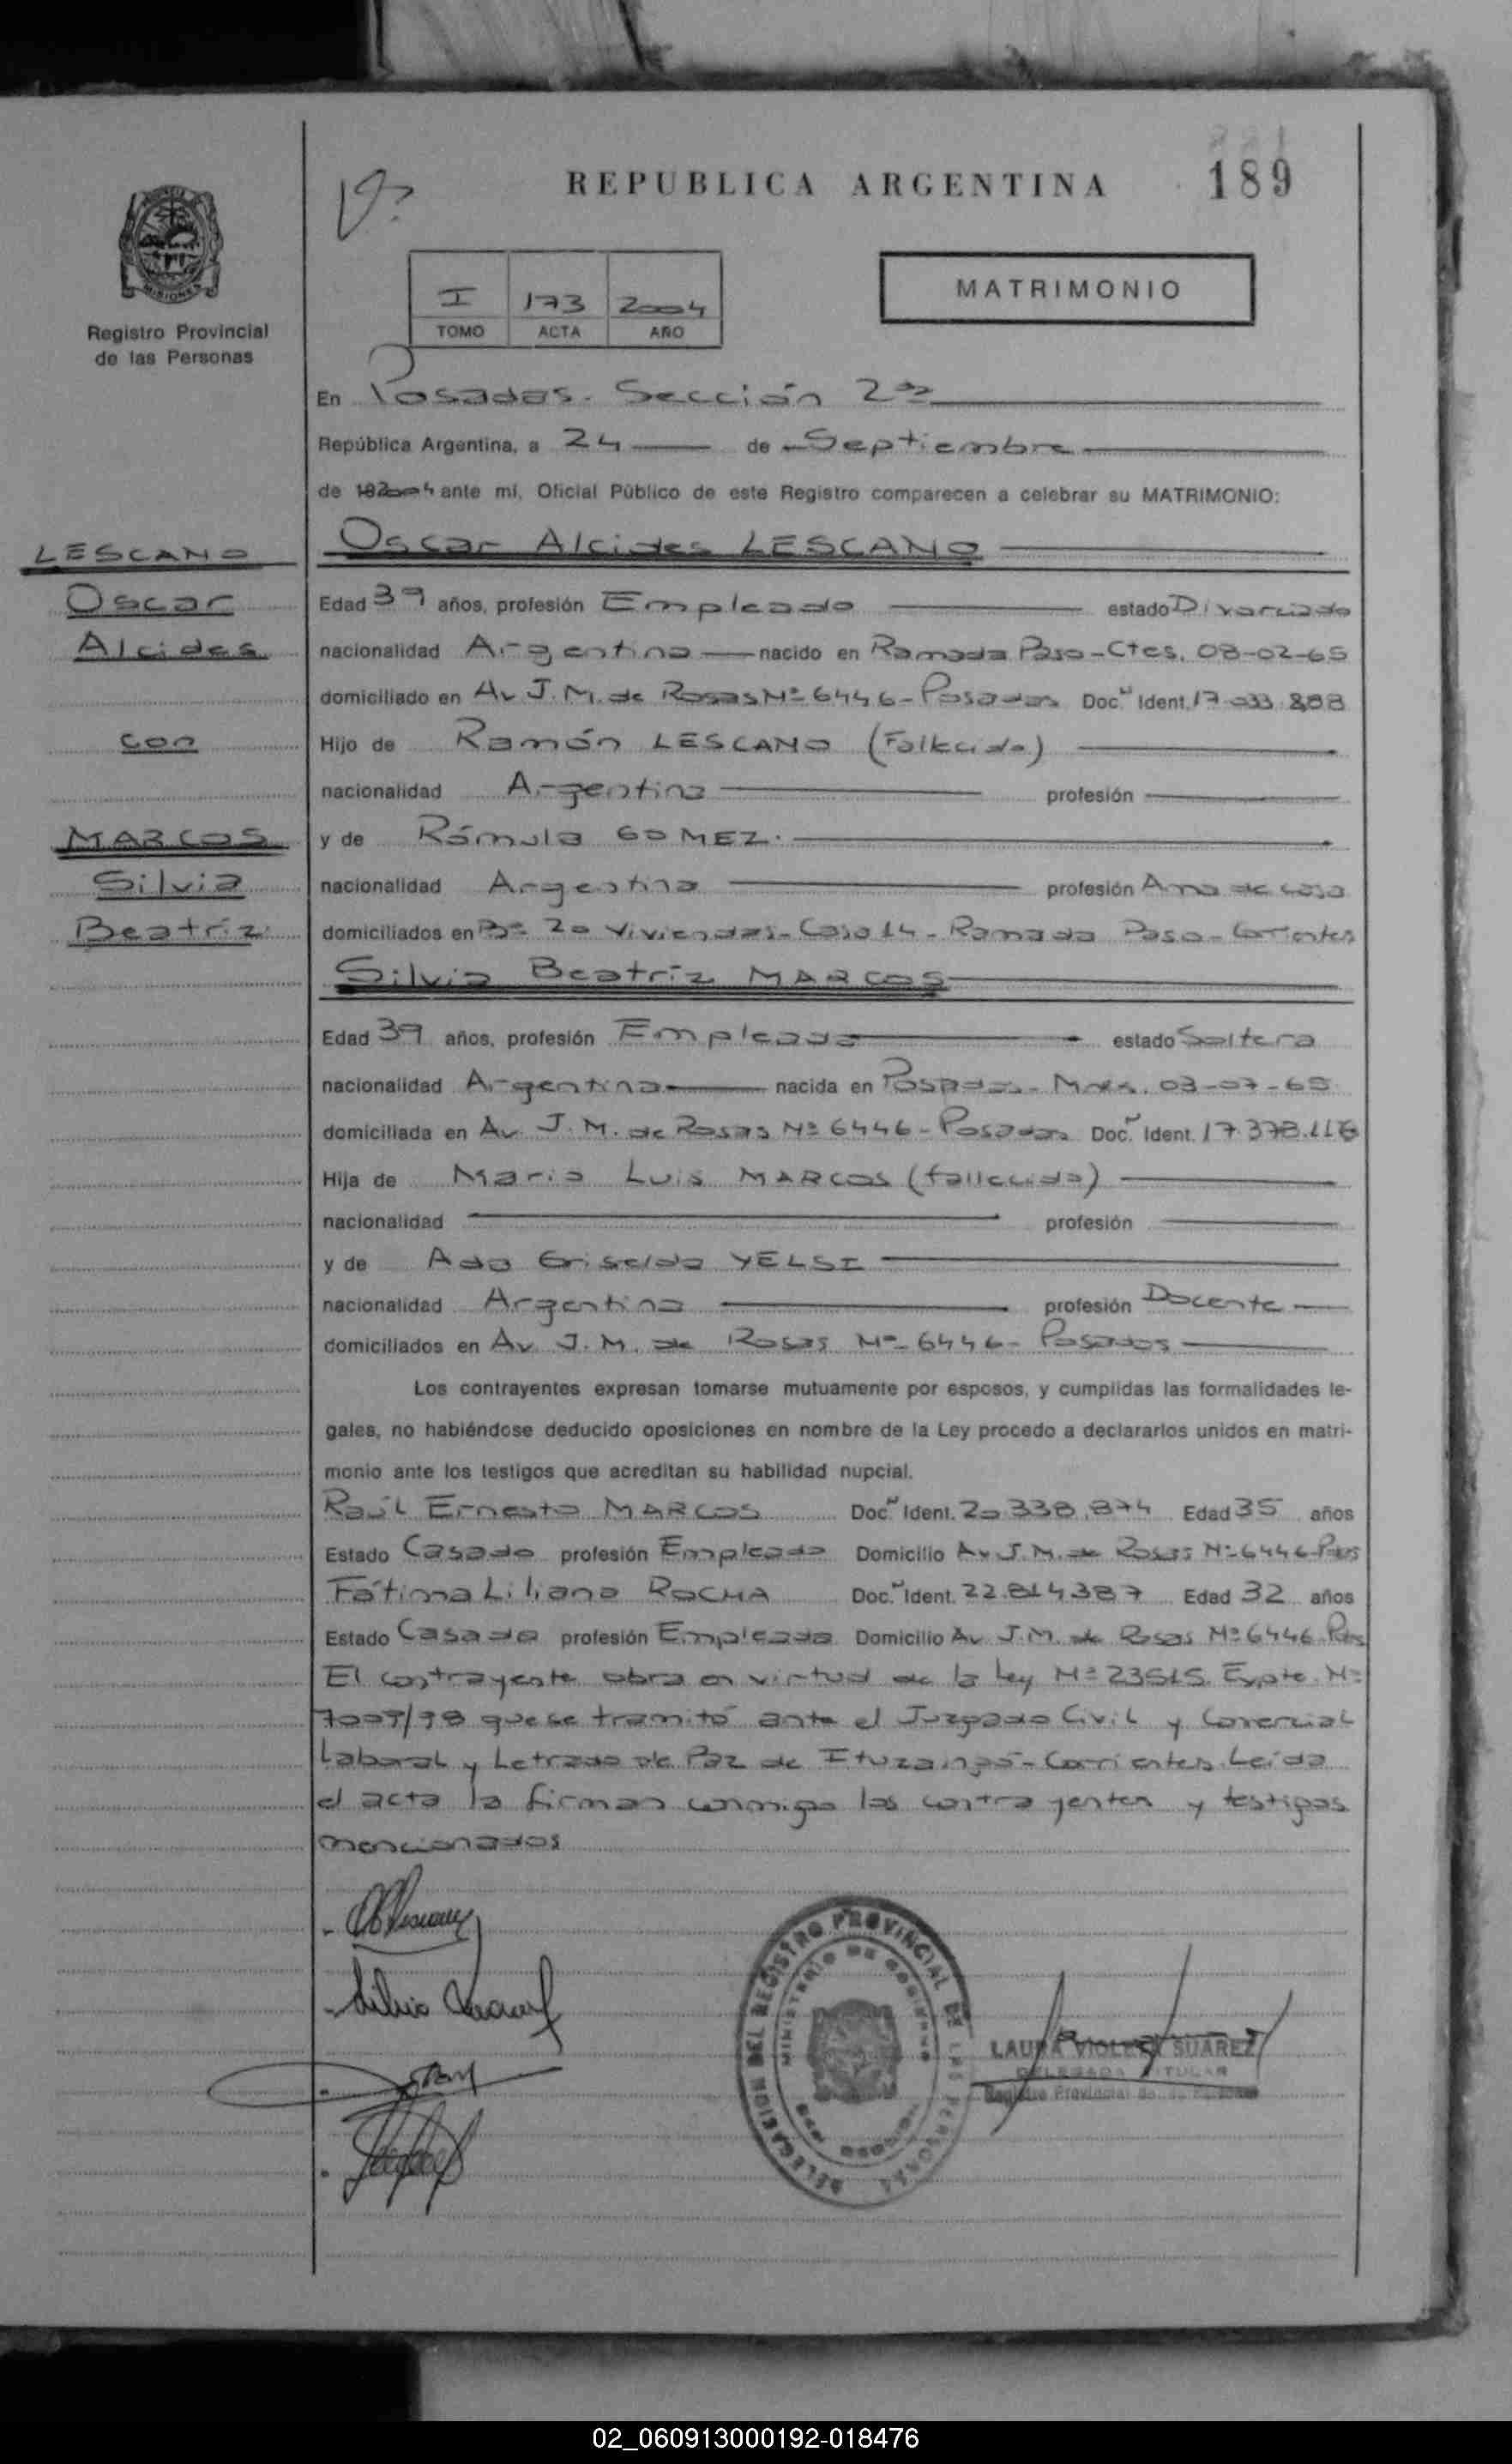 REPUBLICA ARGENTINA
189
MISIONES
Registro Provincial
de las Personas
I 173 2004
TOMO ACTA AÑO
MATRIMONIO
En Posadas. Sección 2da
República Argentina, a 24 de Septiembre
de 2004 ante mí, Oficial Público de este Registro comparecen a celebrar su MATRIMONIO:
LESCANO
Oscar
Alcides
con
MARCOS
Silvia
Beatriz
Oscar Alcides LESCANO
Edad 39 años, profesión Empleado estado Divorciado
nacionalidad Argentina nacido en Ramada Paso-Ctes. 08-02-65
domiciliado en Av J.M. de Rosas Nº 6446-Posadas Doc. Ident. 17.033.888
Hijo de Ramón LESCANO (Fallecido)
nacionalidad Argentina profesión
y de Rómula GOMEZ.
nacionalidad Argentina profesión Ama de casa
domiciliados en Bº 20 Viviendas-Casa 14-Ramada Paso-Corrientes
Silvia Beatriz MARCOS
Edad 39 años, profesión Empleada estado Soltera
nacionalidad Argentina nacida en Posadas-Mnes. 03-07-65
domiciliada en Av. J.M. de Rosas Nº 6446-Posadas Doc. Ident. 17.378.116
Hija de Mario Luis MARCOS (fallecido)
nacionalidad profesión
y de Ada Griselda YELSI
nacionalidad Argentina profesión Docente
domiciliados en Av. J.M. de Rosas Nº 6446-Posadas
Los contrayentes expresan tomarse mutuamente por esposos, y cumplidas las formalidades le-
gales, no habiéndose deducido oposiciones en nombre de la Ley procedo a declararlos unidos en matri-
monio ante los testigos que acreditan su habilidad nupcial.
Raúl Ernesto MARCOS Doc. Ident. 20.338.874 Edad 35 años
Estado Casado profesión Empleado Domicilio Av J.M. de Rosas Nº 6446-Pdas
Fátima Liliana ROCHA Doc. Ident. 22.814.387 Edad 32 años
Estado Casada profesión Empleada Domicilio Av J.M. de Rosas Nº 6446-Pdas
El contrayente obra en virtud de la Ley Nº 23515. Expte. Nº
7009/98 que se tramitó ante el Juzgado Civil y Comercial
Laboral y Letrado de Paz de Ituzaingó-Corrientes. Leída
el acta la firman conmigo los contrayentes y testigos
mencionados
DELEGACION DEL REGISTRO PROVINCIAL DE LAS PERSONAS
MINISTERIO DE GOBIERNO
LAURA VIOLETA SUAREZ
DELEGADA TITULAR
Registro Provincial de las Personas
02_060913000192-018476